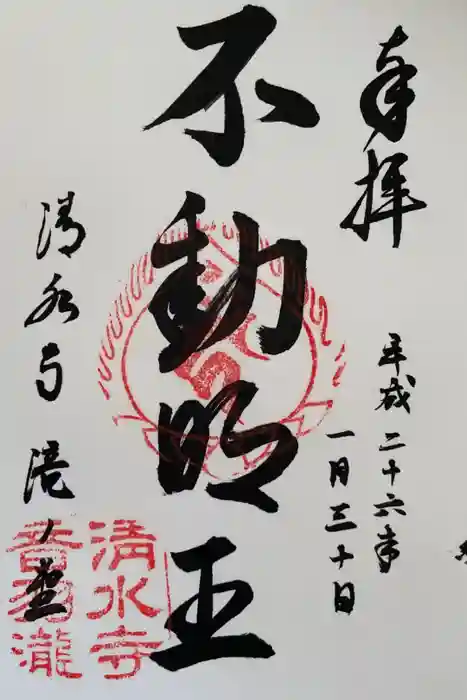 奉拝
平成二十六年
一月三十日
不動明王
清水寺 滝ノ堂
清水寺
音羽瀧